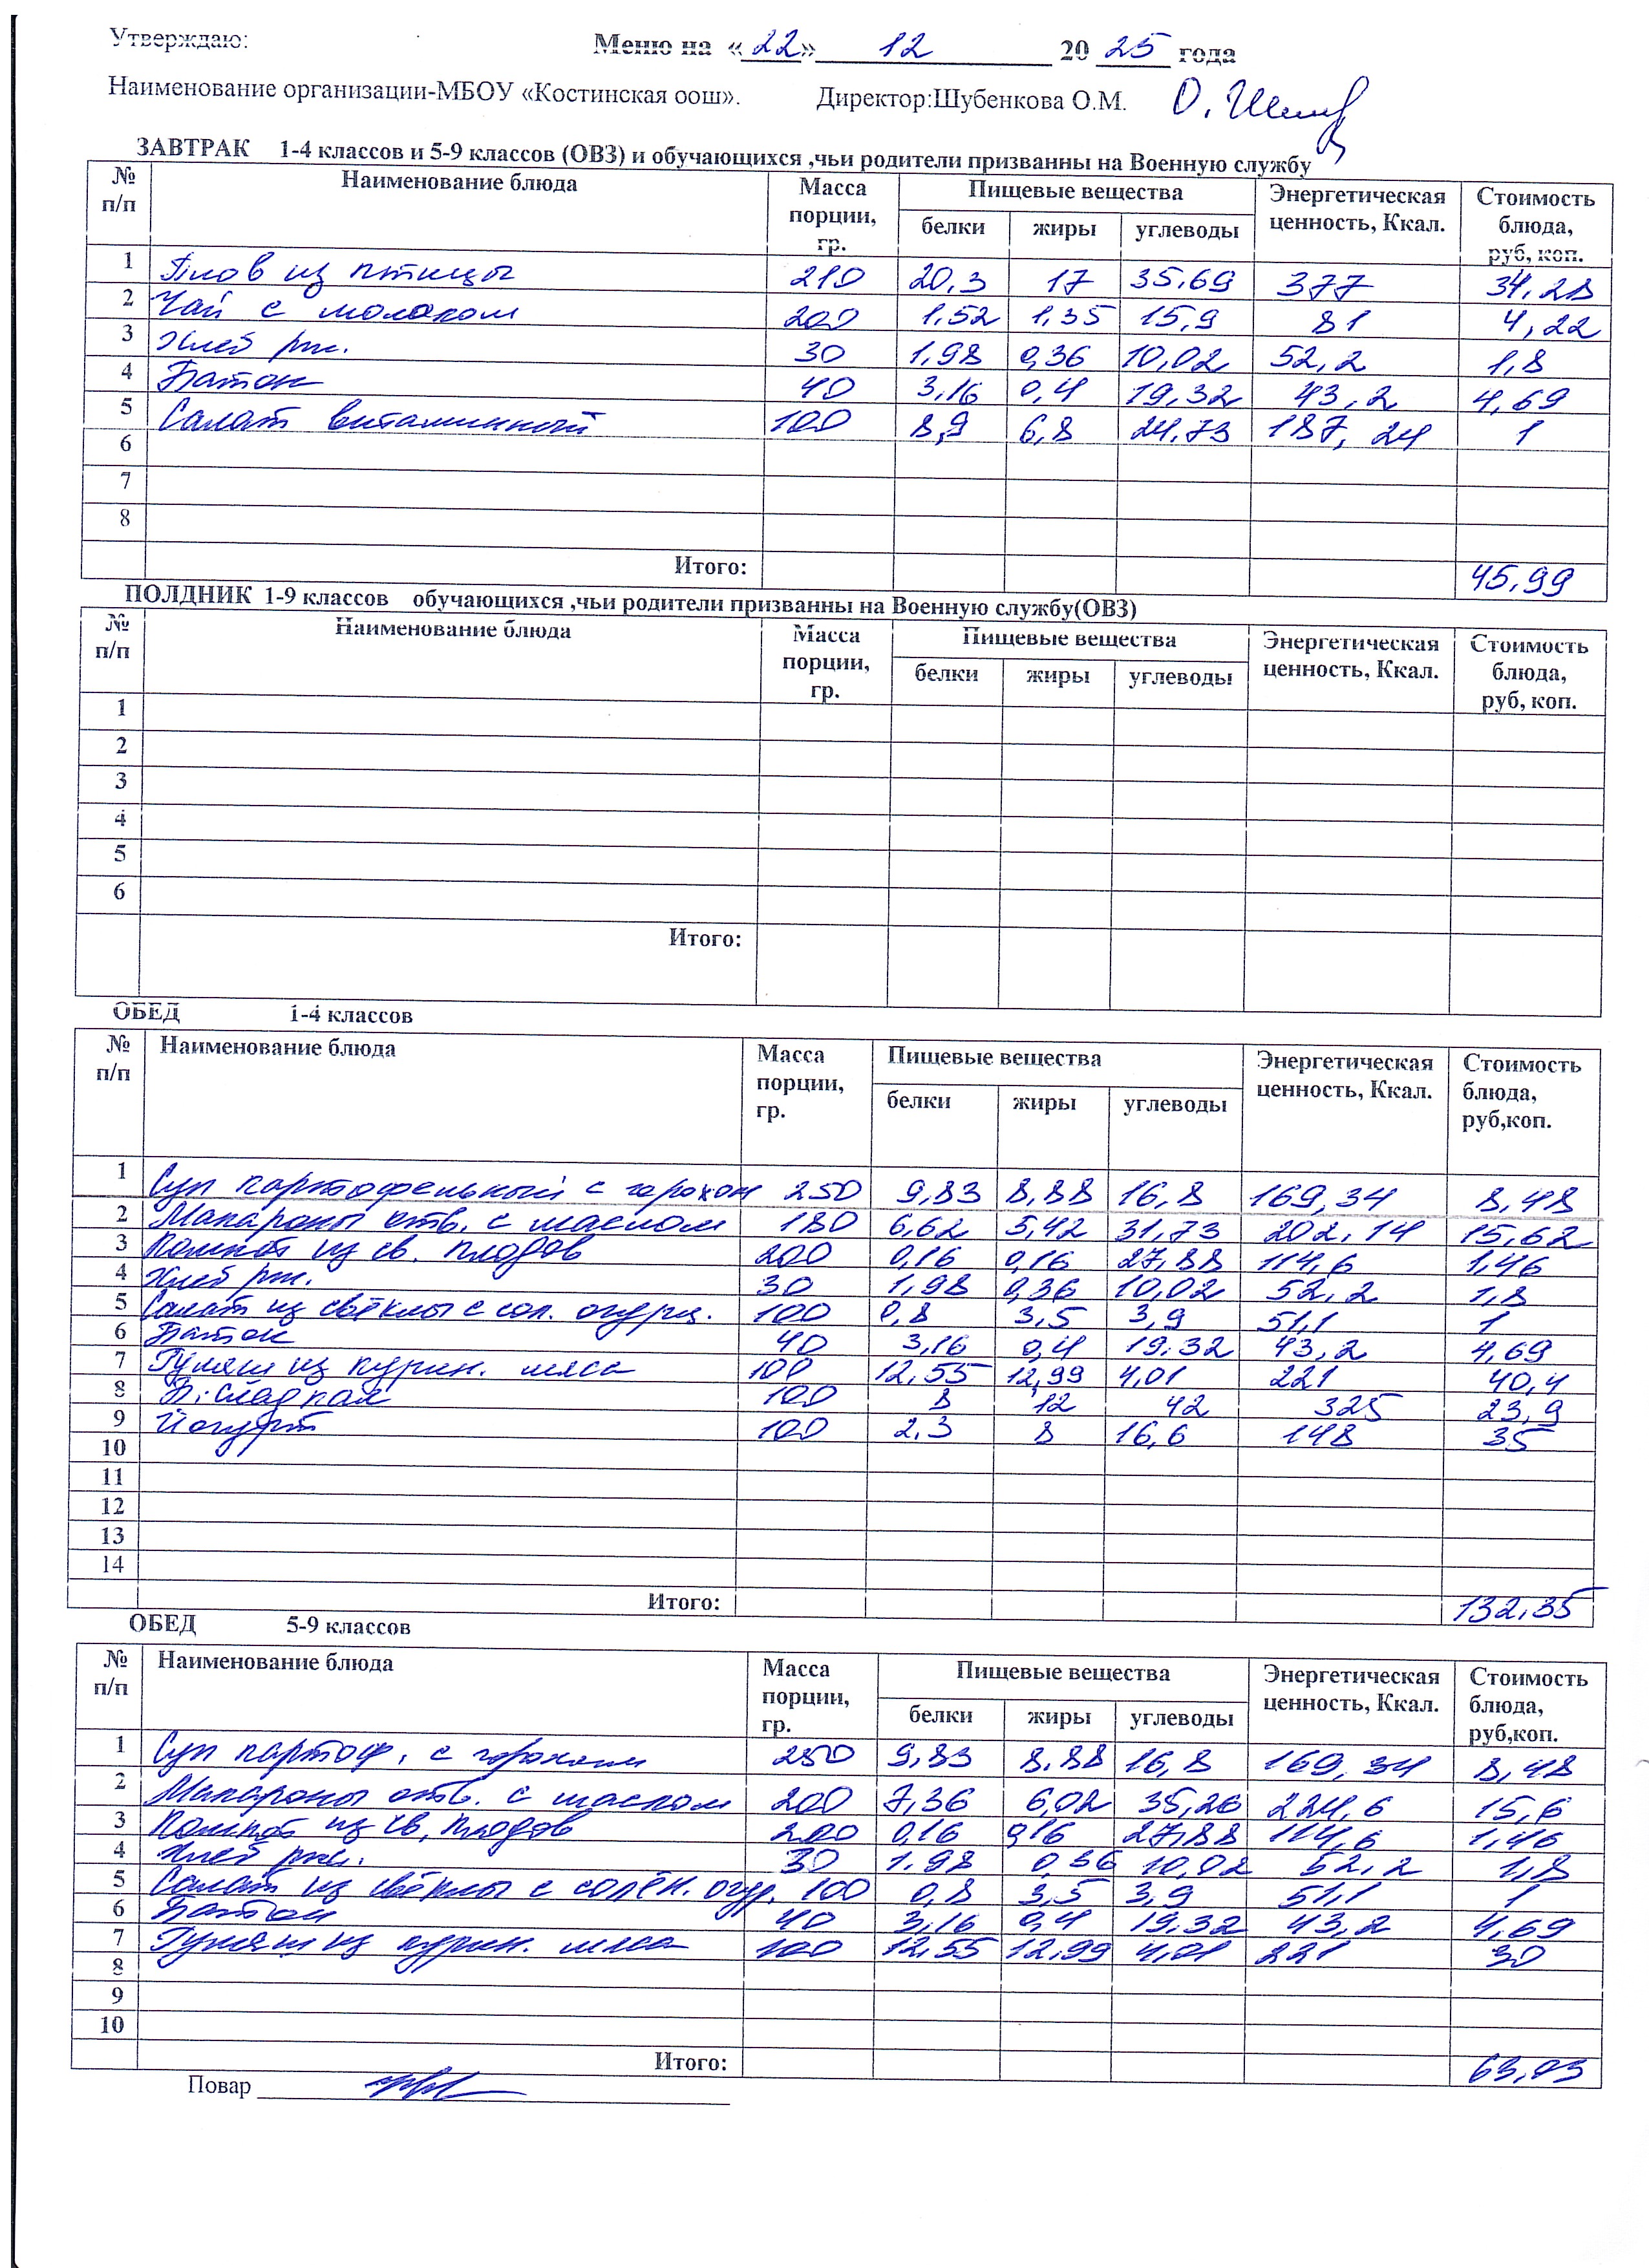 Утверждаю:
Меню на «22» 12 2025 года
Наименование организации-МБОУ «Костинская оош». Директор:Шубенкова О.М.
ЗАВТРАК 1-4 классов и 5-9 классов (ОВЗ) и обучающихся ,чьи родители призванны на Военную службу
№ п/п Наименование блюда Масса порции, гр. Пищевые вещества Энергетическая ценность, Ккал. Стоимость блюда, руб, коп.
белки жиры углеводы
1 Плов из птицы 210 20,3 17 35,69 377 34,28
2 Чай с молоком 200 1,52 1,35 15,9 81 4,22
3 Хлеб рж. 30 1,98 0,36 10,02 52,2 1,8
4 Батон 40 3,16 0,4 19,32 43,2 4,69
5 Салат витаминный 100 8,9 6,8 24,73 187,24 1
6
7
8
Итого: 45,99
ПОЛДНИК 1-9 классов обучающихся ,чьи родители призванны на Военную службу(ОВЗ)
№ п/п Наименование блюда Масса порции, гр. Пищевые вещества Энергетическая ценность, Ккал. Стоимость блюда, руб, коп.
белки жиры углеводы
1
2
3
4
5
6
Итого:
ОБЕД 1-4 классов
№ п/п Наименование блюда Масса порции, гр. Пищевые вещества Энергетическая ценность, Ккал. Стоимость блюда, руб,коп.
белки жиры углеводы
1 Суп картофельный с горохом 250 9,83 8,88 16,8 169,34 8,48
2 Макароны отв. с маслом 180 6,62 5,42 31,73 202,14 15,62
3 Компот из св. плодов 200 0,16 0,16 27,88 114,6 1,46
4 Хлеб рж. 30 1,98 0,36 10,02 52,2 1,8
5 Салат из свёклы с сол. огурц. 100 0,8 3,5 3,9 51,1 1
6 Батон 40 3,16 0,4 19,32 43,2 4,69
7 Гуляш из курин. мяса 100 12,55 12,99 4,01 221 40,4
8 Б. сладкая 100 8 12 42 325 23,9
9 Йогурт 100 2,3 8 16,6 148 35
10
11
12
13
14
Итого: 132,35
ОБЕД 5-9 классов
№ п/п Наименование блюда Масса порции, гр. Пищевые вещества Энергетическая ценность, Ккал. Стоимость блюда, руб,коп.
белки жиры углеводы
1 Суп картоф. с горохом 250 9,83 8,88 16,8 169,34 8,48
2 Макароны отв. с маслом 200 7,36 6,02 35,26 224,6 15,6
3 Компот из св. плодов 200 0,16 0,16 27,88 114,6 1,46
4 Хлеб рж. 30 1,98 0,36 10,02 52,2 1,8
5 Салат из свёклы с солён. огур. 100 0,8 3,5 3,9 51,1 1
6 Батон 40 3,16 0,4 19,32 43,2 4,69
7 Гуляш из курин. мяса 100 12,55 12,99 4,01 221 30
8
9
10
Итого: 63,03
Повар